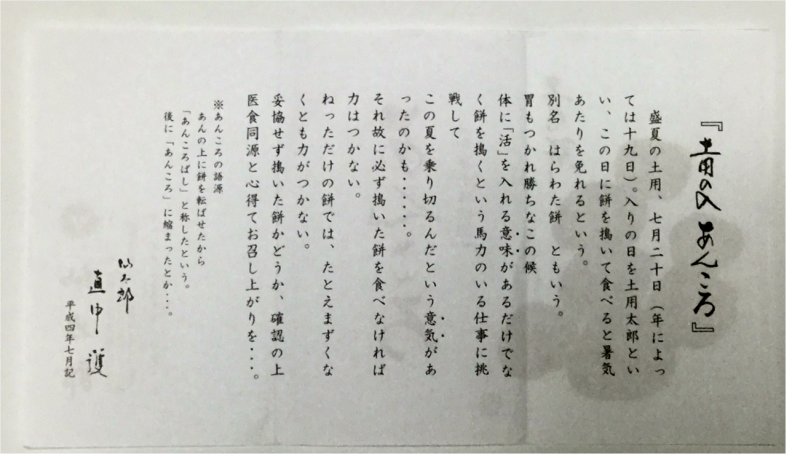 『土用の入 あんころ』
盛夏の土用、七月二十日（年によっ
ては十九日）。入りの日を土用太郎とい
い、この日に餅を搗いて食べると暑気
あたりを免れるという。
別名　はらわた餅　ともいう。
胃もつかれ勝ちなこの候
体に「活」を入れる意味があるだけでな
く餅を搗くという馬力のいる仕事に挑
戦して
この夏を乗り切るんだという意気があ
ったのかも・・・・・・。
それ故に必ず搗いた餅を食べなければ
力はつかない。
ねっただけの餅では、たとえまずくな
くとも力がつかない。
妥協せず搗いた餅かどうか、確認の上
医食同源と心得てお召し上がりを・・・。
※あんころの語源
あんの上に餅を転ばせたから
「あんころばし」と称したという。
後に「あんころ」に縮まったとか・・・。
仙太郎
直中 護
平成四年七月記